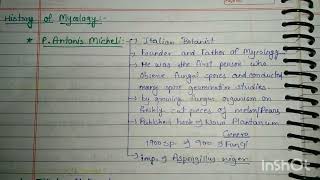 History of Mycology:-
* P. Antonis Micheli:
→ Italian Botanist
→ Founder and Father of Mycology
→ He was the first person who
observe fungal spores and conducted
many spore germination studies.
→ by growing fungus organism on
freshly cut pieces of melon/Pears
→ Published book of Nova Plantarum
Genera
1900 sp. of 900 of Fungi
→ imp. of Aspergillus niger.
Made with
InShOt